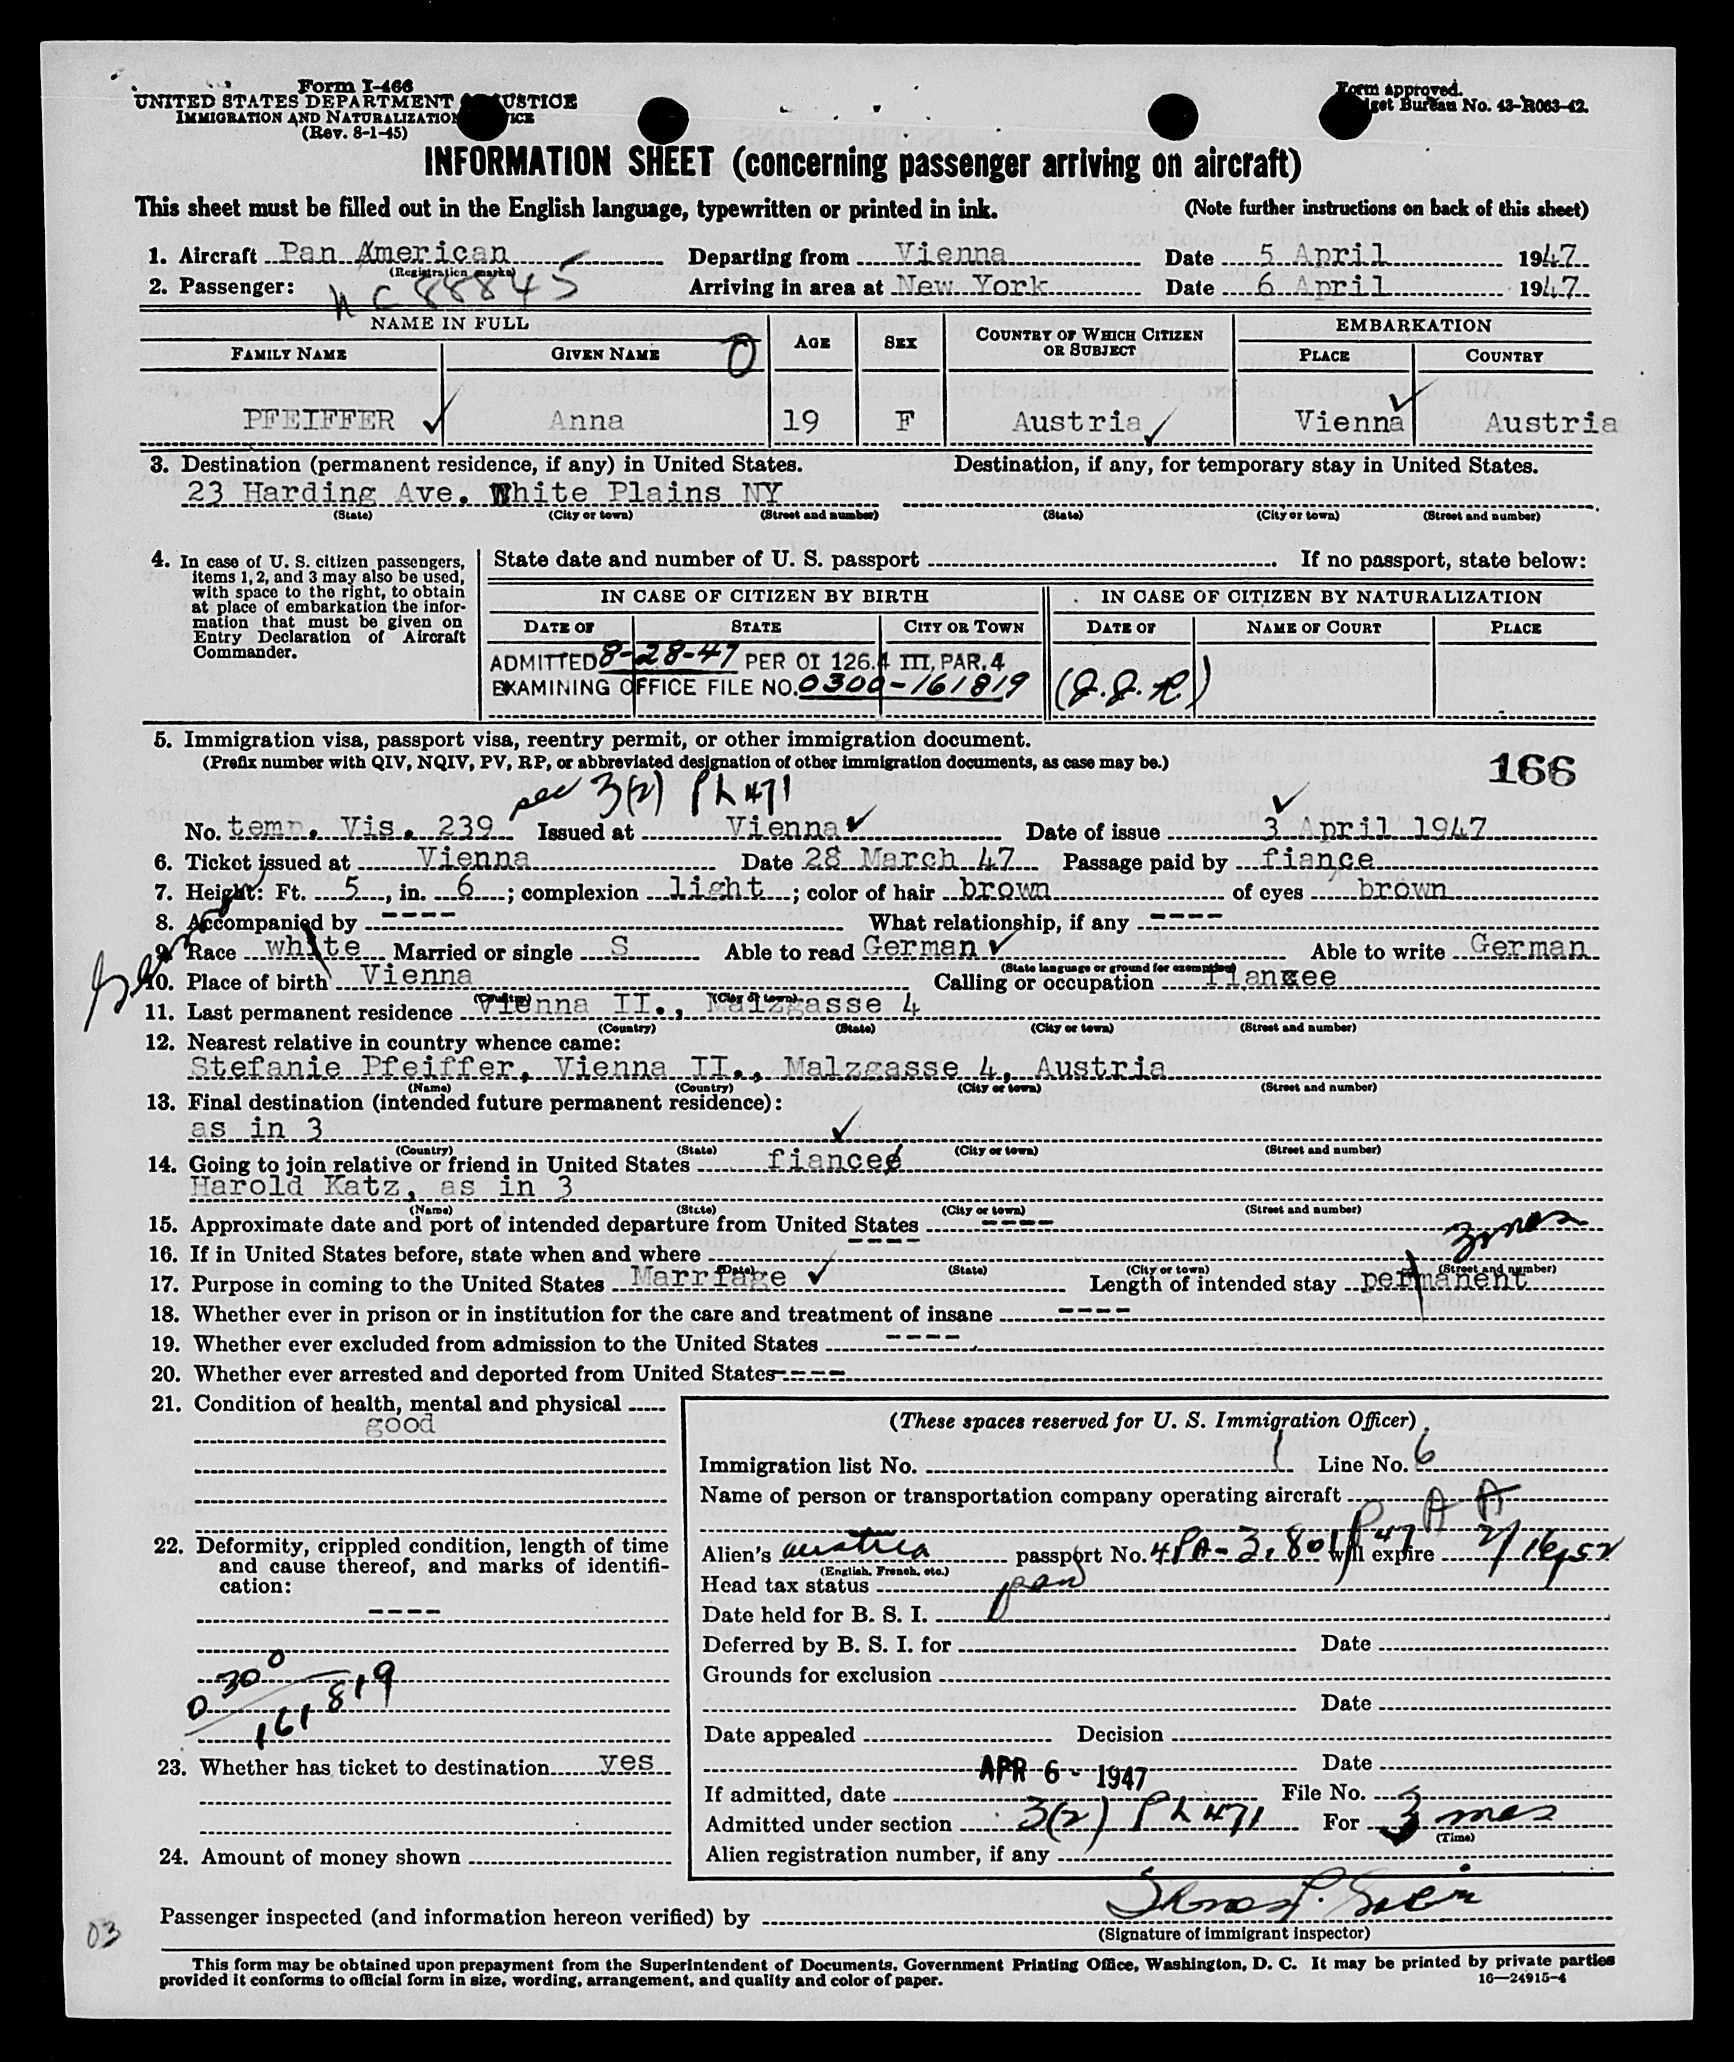 Form I-466
UNITED STATES DEPARTMENT JUSTICE
IMMIGRATION AND NATURALIZATION
(Rev. 8-1-45)
Form approved.
Bureau No. 43-R063-42.
INFORMATION SHEET (concerning passenger arriving on aircraft)
This sheet must be filled out in the English language, typewritten or printed in ink. (Note further instructions on back of this sheet)
1. Aircraft Pan American Departing from Vienna Date 5 April 1947
(Registration marks)
2. Passenger: NC 88845 Arriving in area at New York Date 6 April 1947
NAME IN FULL AGE SEX COUNTRY OF WHICH CITIZEN OR SUBJECT EMBARKATION
FAMILY NAME GIVEN NAME 0 PLACE COUNTRY
PFEIFFER Anna 19 F Austria Vienna Austria
3. Destination (permanent residence, if any) in United States. Destination, if any, for temporary stay in United States.
23 Harding Ave. White Plains NY
(State) (City or town) (Street and number) (State) (City or town) (Street and number)
4. In case of U. S. citizen passengers, items 1, 2, and 3 may also be used, with space to the right, to obtain at place of embarkation the information that must be given on Entry Declaration of Aircraft Commander.
State date and number of U. S. passport If no passport, state below:
IN CASE OF CITIZEN BY BIRTH IN CASE OF CITIZEN BY NATURALIZATION
DATE OF STATE CITY OR TOWN DATE OF NAME OF COURT PLACE
ADMITTED 8-28-47 PER OI 126.4 III, PAR. 4
EXAMINING OFFICE FILE NO. 0300-161819 (J.J.R.)
5. Immigration visa, passport visa, reentry permit, or other immigration document.
(Prefix number with QIV, NQIV, PV, RP, or abbreviated designation of other immigration documents, as case may be.)
166
sec 3(2) PL 471
No. temp. Vis. 239 Issued at Vienna Date of issue 3 April 1947
6. Ticket issued at Vienna Date 28 March 47 Passage paid by fiance
7. Height: Ft. 5, in. 6; complexion light; color of hair brown of eyes brown
8. Accompanied by ---- What relationship, if any ----
9. Race white Married or single S Able to read German Able to write German
(State language or ground for exemption)
10. Place of birth Vienna Calling or occupation fiancee
(Country) (City or town)
11. Last permanent residence Vienna II., Malzgasse 4
(Country) (State) (City or town) (Street and number)
12. Nearest relative in country whence came:
Stefanie Pfeiffer, Vienna II., Malzgasse 4, Austria
(Name) (Country) (City or town) (Street and number)
13. Final destination (intended future permanent residence):
as in 3
(Country) (State) (City or town) (Street and number)
14. Going to join relative or friend in United States fiance
Harold Katz, as in 3
(Name) (State) (City or town) (Street and number)
15. Approximate date and port of intended departure from United States ----
3 mos
16. If in United States before, state when and where ----
(Date) (State) (City or town) (Street and number)
17. Purpose in coming to the United States Marriage Length of intended stay permanent
18. Whether ever in prison or in institution for the care and treatment of insane ----
19. Whether ever excluded from admission to the United States ----
20. Whether ever arrested and deported from United States ----
21. Condition of health, mental and physical
good
22. Deformity, crippled condition, length of time and cause thereof, and marks of identification:
----
0300
161819
23. Whether has ticket to destination yes
24. Amount of money shown
(These spaces reserved for U. S. Immigration Officer)
Immigration list No. 1 Line No. 6
Name of person or transportation company operating aircraft
P A A
Alien's Austria passport No. 4PA-3.801/P47 will expire 2/16/52
(English, French, etc.)
Head tax status
Date held for B. S. I.
Deferred by B. S. I. for Date
Grounds for exclusion
Date
Date appealed Decision
Date
APR 6 - 1947
If admitted, date File No.
Admitted under section 3(2) PL 471 For 3 mos
(Time)
Alien registration number, if any
Passenger inspected (and information hereon verified) by
(Signature of immigrant inspector)
03
This form may be obtained upon prepayment from the Superintendent of Documents, Government Printing Office, Washington, D. C. It may be printed by private parties
provided it conforms to official form in size, wording, arrangement, and quality and color of paper.
16—24915-4